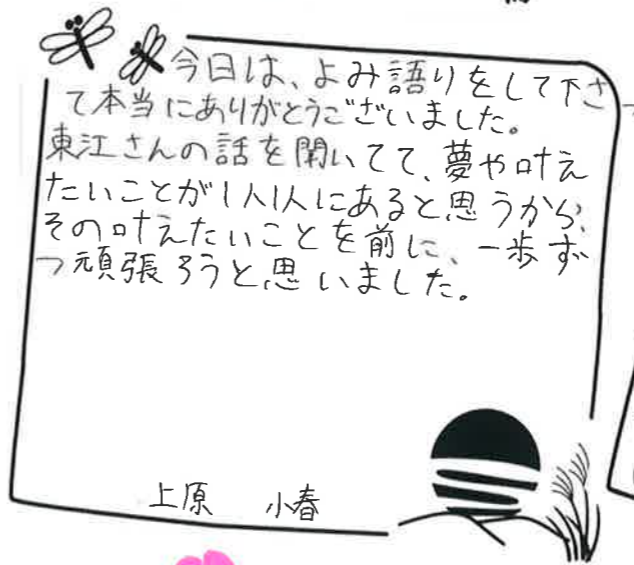 今日は、よみ語りをして下さっ
て本当にありがとうございました。
東江さんの話を聞いてて、夢や叶え
たいことが1人1人にあると思うから、
その叶えたいことを前に、一歩ず
つ頑張ろうと思いました。
上原 小春